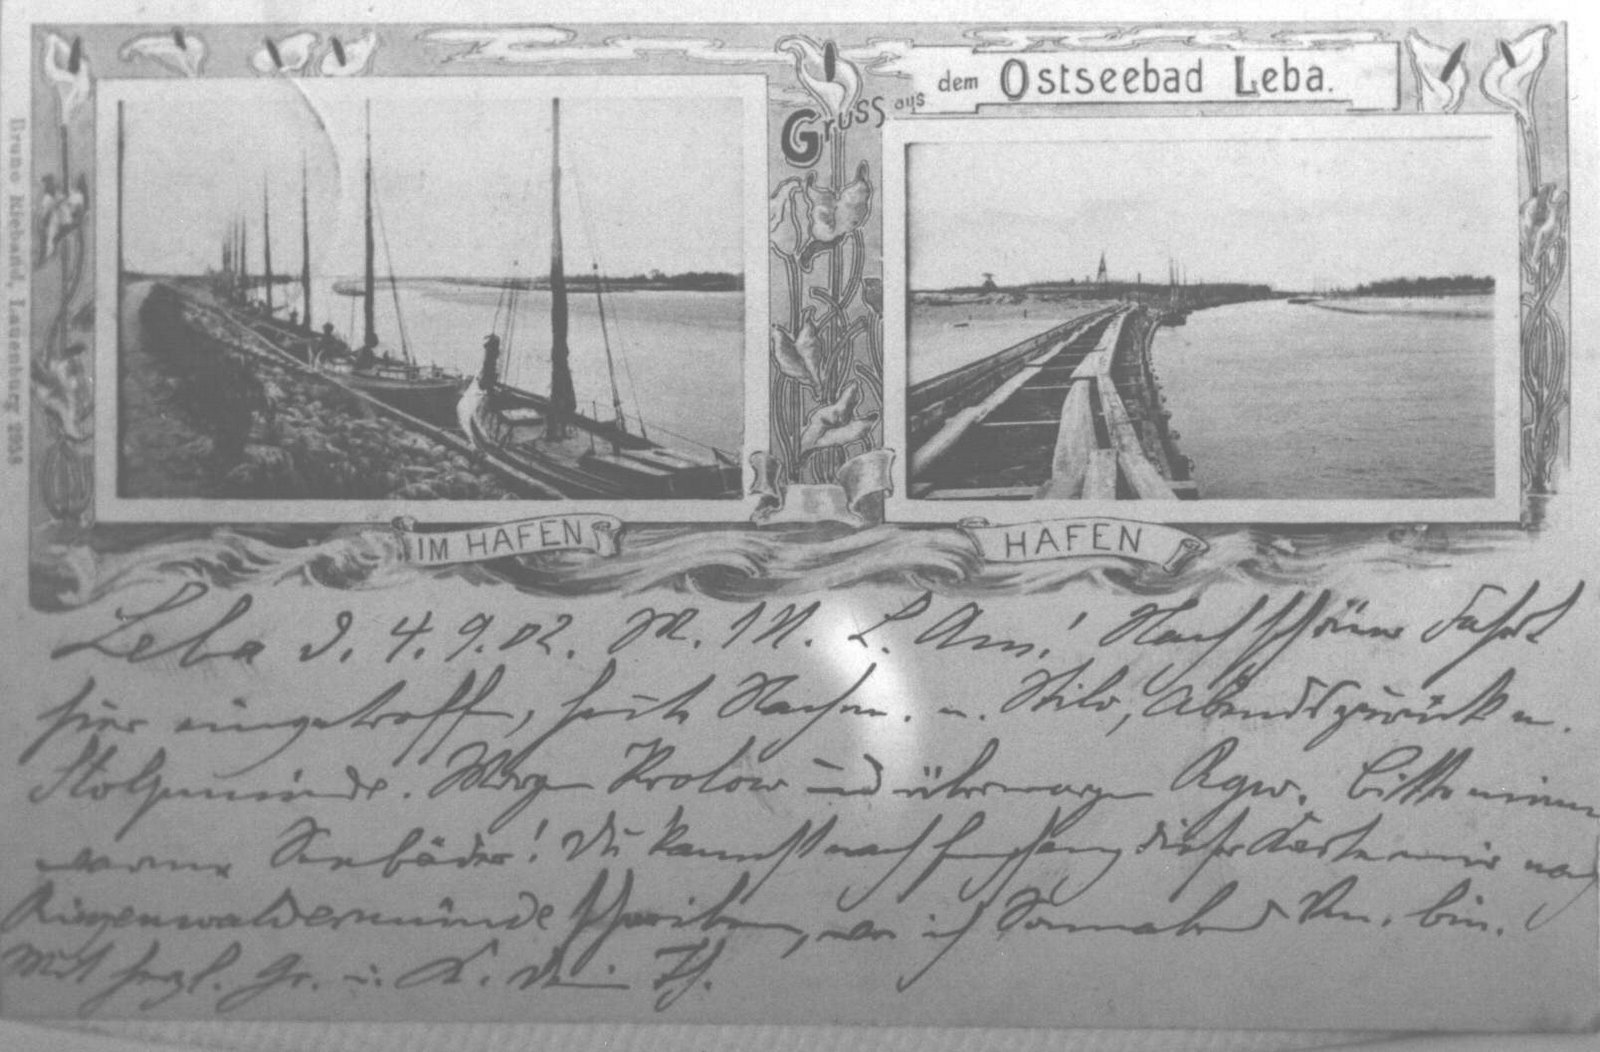 Gruss aus dem Ostseebad Leba.
Bruno Nieband, Lauenburg
IM HAFEN
HAFEN
Leba d. 4. 9. 02. M. L. Am! Nach schöner Fahrt
hier eingetroff, heute Nachm. n. Stilo, Abends zurück n.
Stolpmünde. Morgen und übermorgen Rgw. Bitte nimm
warme Seebäder! Du kannst nach Empfang dieser Karte mir nach
Rügenwaldermünde schreiben, wo ich Sonnabend Vm. bin.
Mit herzl. Gr. u. K. Dein Th.